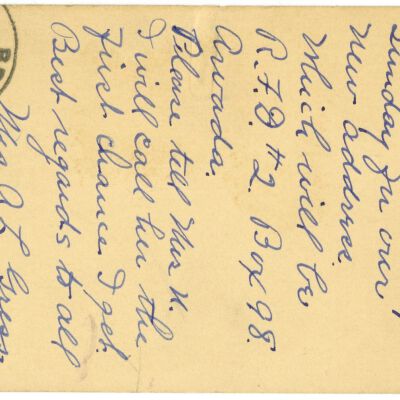 Sunday In our
New address
Which will be
R.F.D. #2. Box 98.
Arvada.
Please tell Mrs H.
I will call her the
first chance I get.
Best regards to all
Mrs A L Gress